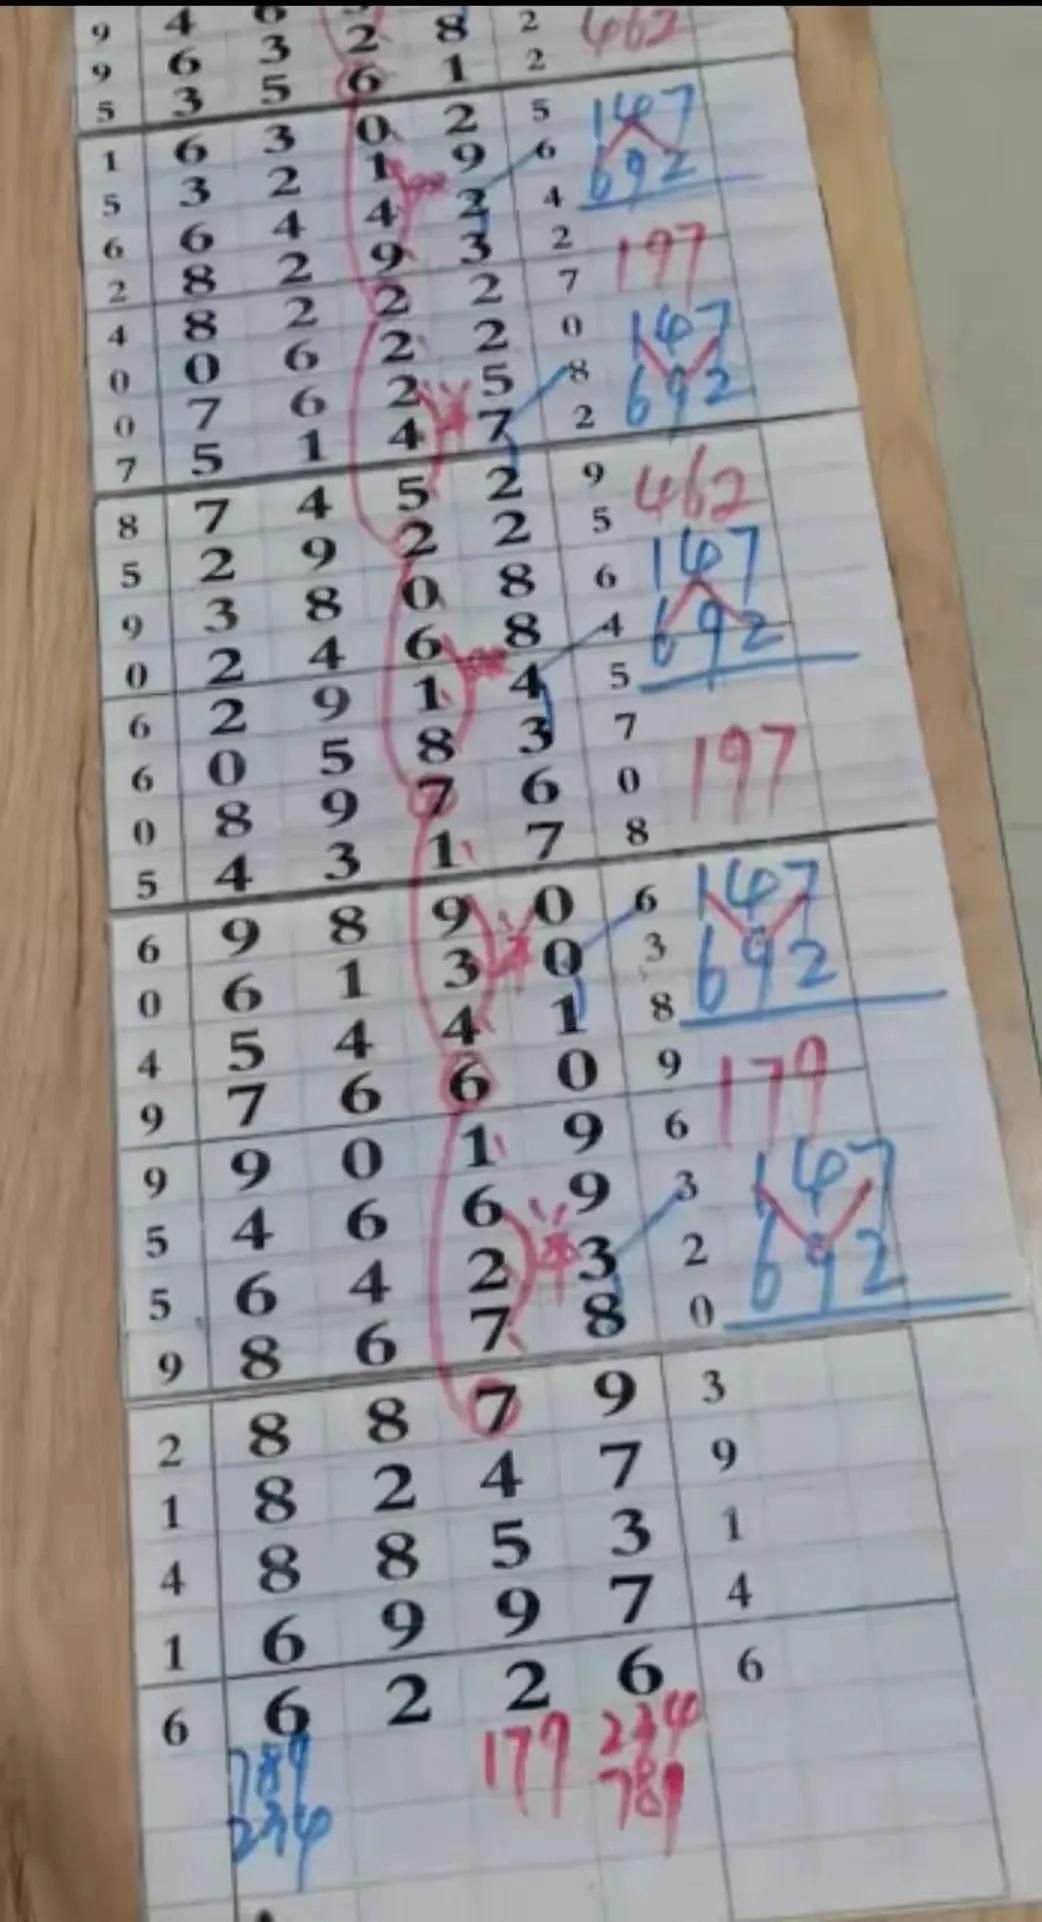 9 4 8 2
9 6 3 2 1 2 462
5 3 5 6
1 6 3 0 2 5 147
5 3 2 1 9 6 692
6 6 4 4 2 4
2 8 2 9 3 2 197
4 8 2 2 2 7
0 0 6 2 2 0 147
0 7 6 2 5 8 692
7 5 1 4 7 2
8 7 4 5 2 9 462
5 2 9 2 2 5
9 3 8 0 8 6 147
0 2 4 6 8 4 692
6 2 9 1 4 5
6 0 5 8 3 7
0 8 9 7 6 0 197
5 4 3 1 7 8
6 9 8 9 0 6 147
0 6 1 3 0 3 692
4 5 4 4 1 8
9 7 6 6 0 9 179
9 9 0 1 9 6
5 4 6 6 9 3 147
5 6 4 2 3 2 692
9 8 6 7 8 0
2 8 8 7 9 3
1 8 2 4 7 9
4 8 8 5 3 1
1 6 9 9 7 4
6 6 2 2 6 6
789 179 234
234 789